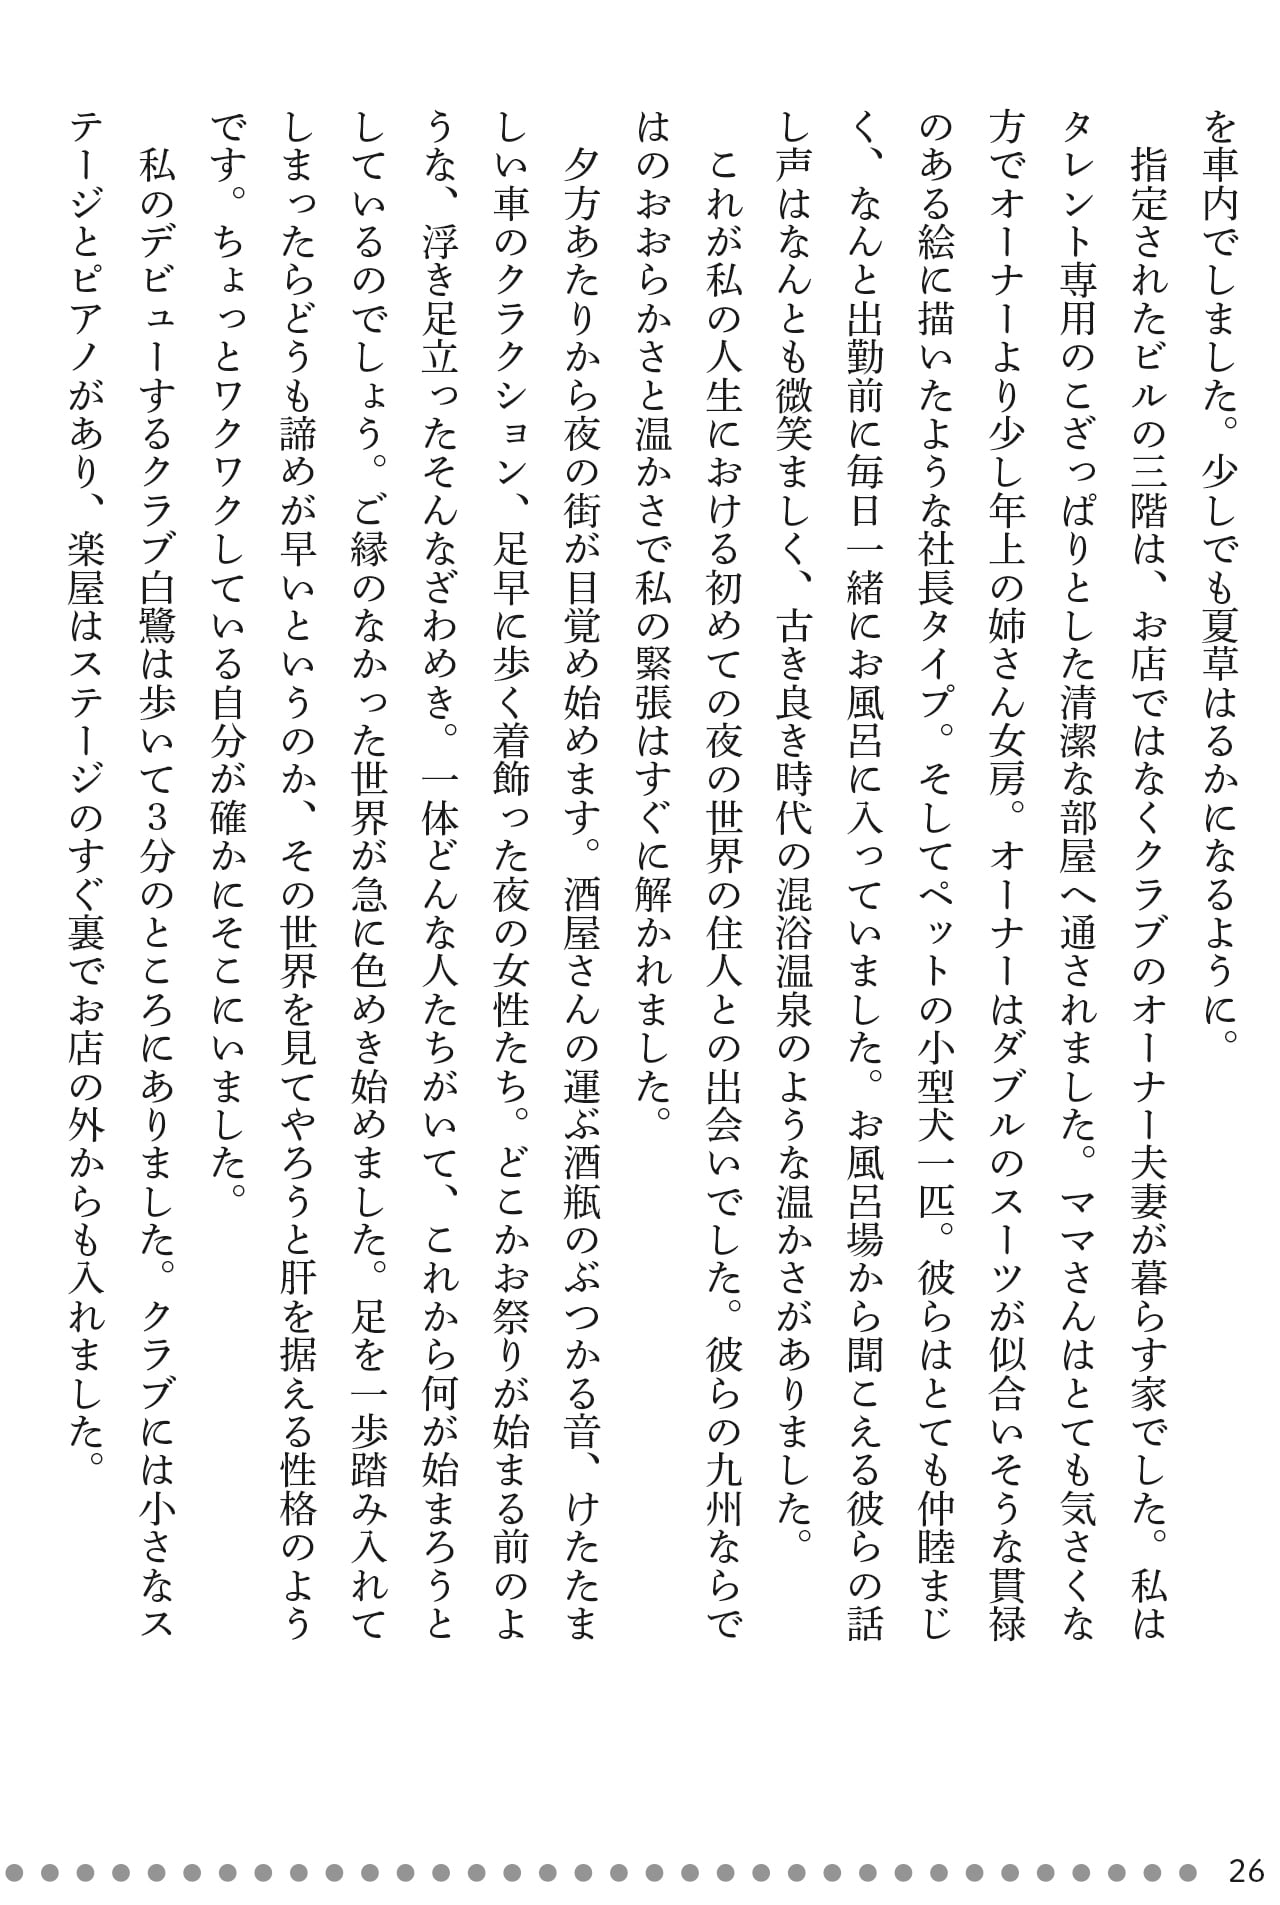 を車内でしました。少しでも夏草はるかになるように。
　指定されたビルの三階は、お店ではなくクラブのオーナー夫妻が暮らす家でした。私は
タレント専用のこざっぱりとした清潔な部屋へ通されました。ママさんはとても気さくな
方でオーナーより少し年上の姉さん女房。オーナーはダブルのスーツが似合いそうな貫禄
のある絵に描いたような社長タイプ。そしてペットの小型犬一匹。彼らはとても仲睦まじ
く、なんと出勤前に毎日一緒にお風呂に入っていました。お風呂場から聞こえる彼らの話
し声はなんとも微笑ましく、古き良き時代の混浴温泉のような温かさがありました。
　これが私の人生における初めての夜の世界の住人との出会いでした。彼らの九州ならで
はのおおらかさと温かさで私の緊張はすぐに解かれました。
　夕方あたりから夜の街が目覚め始めます。酒屋さんの運ぶ酒瓶のぶつかる音、けたたま
しい車のクラクション、足早に歩く着飾った夜の女性たち。どこかお祭りが始まる前のよ
うな、浮き足立ったそんなざわめき。一体どんな人たちがいて、これから何が始まろうと
しているのでしょう。ご縁のなかった世界が急に色めき始めました。足を一歩踏み入れて
しまったらどうも諦めが早いというのか、その世界を見てやろうと肝を据える性格のよう
です。ちょっとワクワクしている自分が確かにそこにいました。
　私のデビューするクラブ白鷺は歩いて３分のところにありました。クラブには小さなス
テージとピアノがあり、楽屋はステージのすぐ裏でお店の外からも入れました。
26